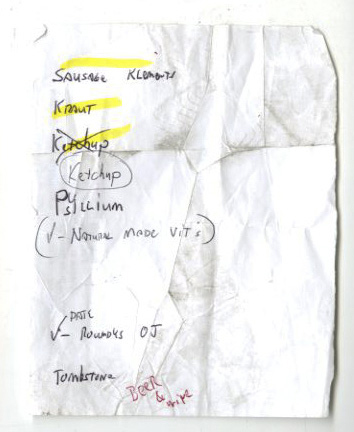 Sausage Klements
Kraut
Ketchup
Ketchup
Psyllium
(√- Natural Made Vit's)
Date
√- Roundys OJ
Tombstone
Beer
&